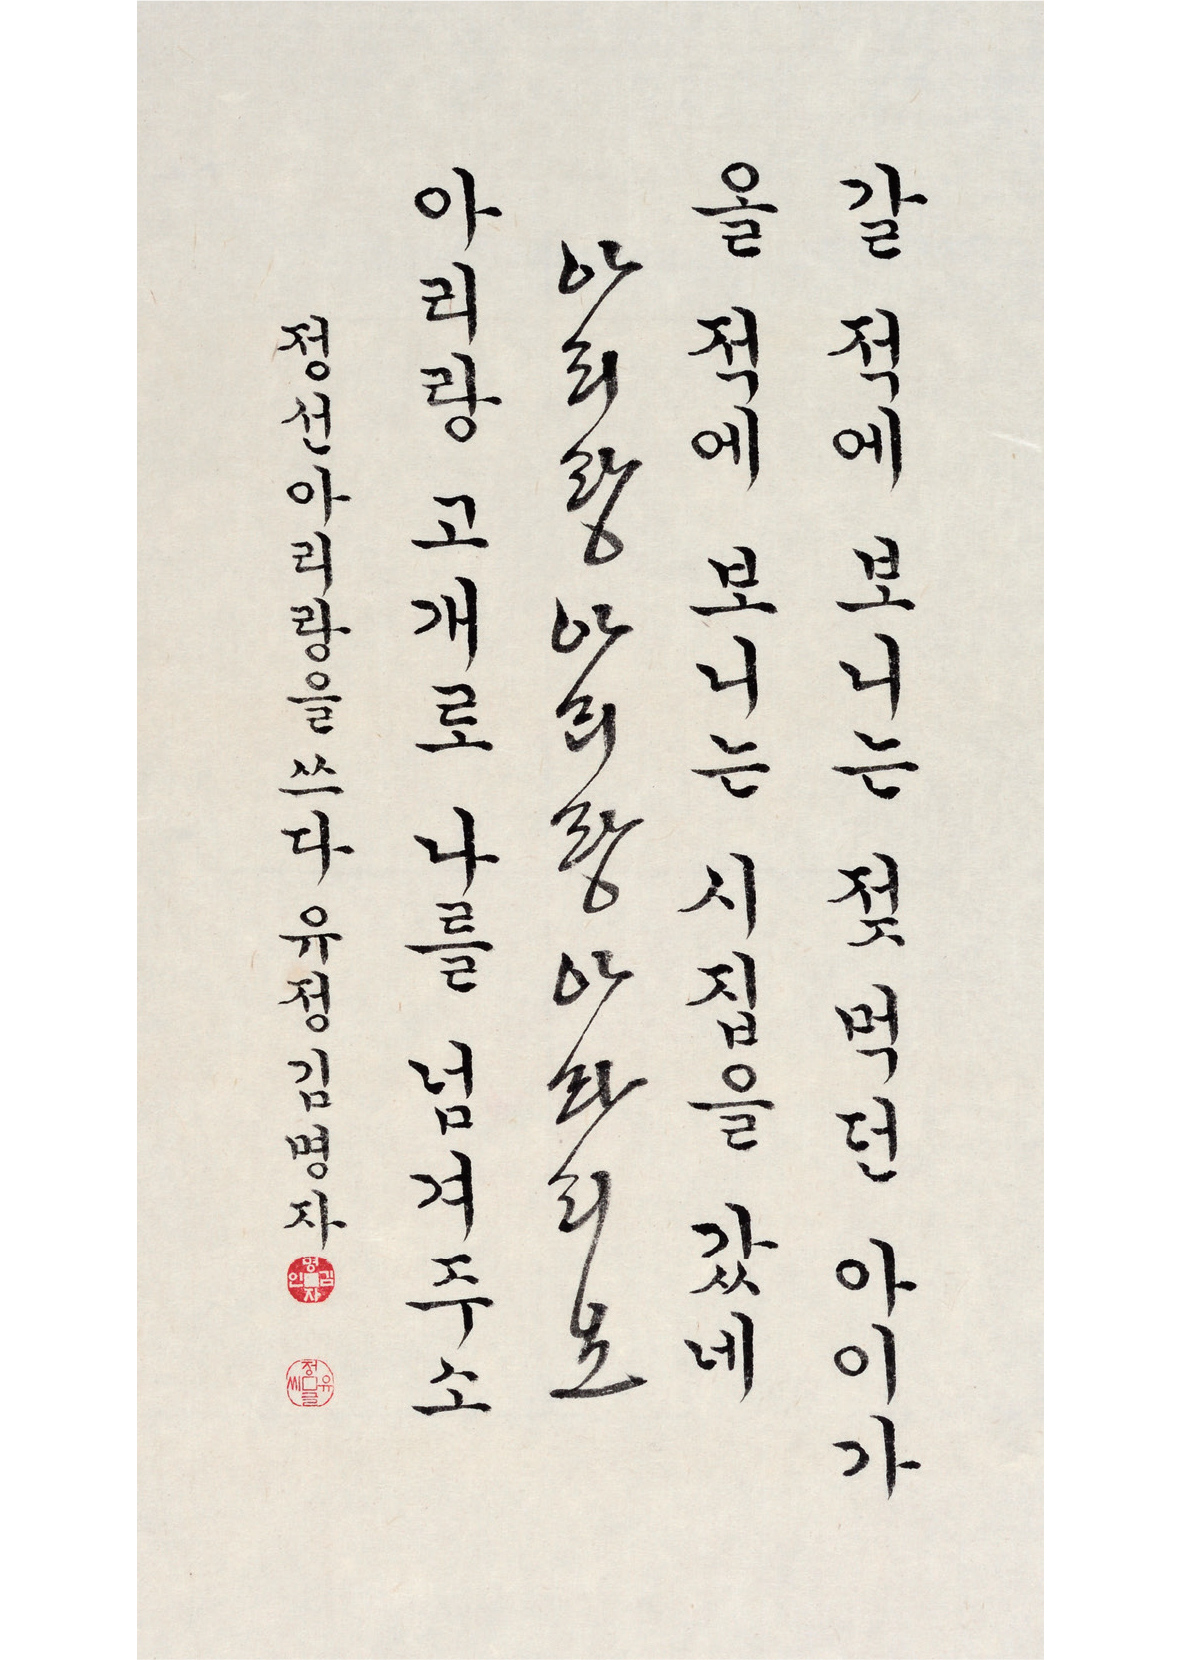 갈 적에 보니는 젖 먹던 아이가
올 적에 보니는 시집을 갔네
아리랑 아리랑 아라리요
아리랑 고개로 나를 넘겨주소
정선아리랑을 쓰다 유정 김명자
김명자인